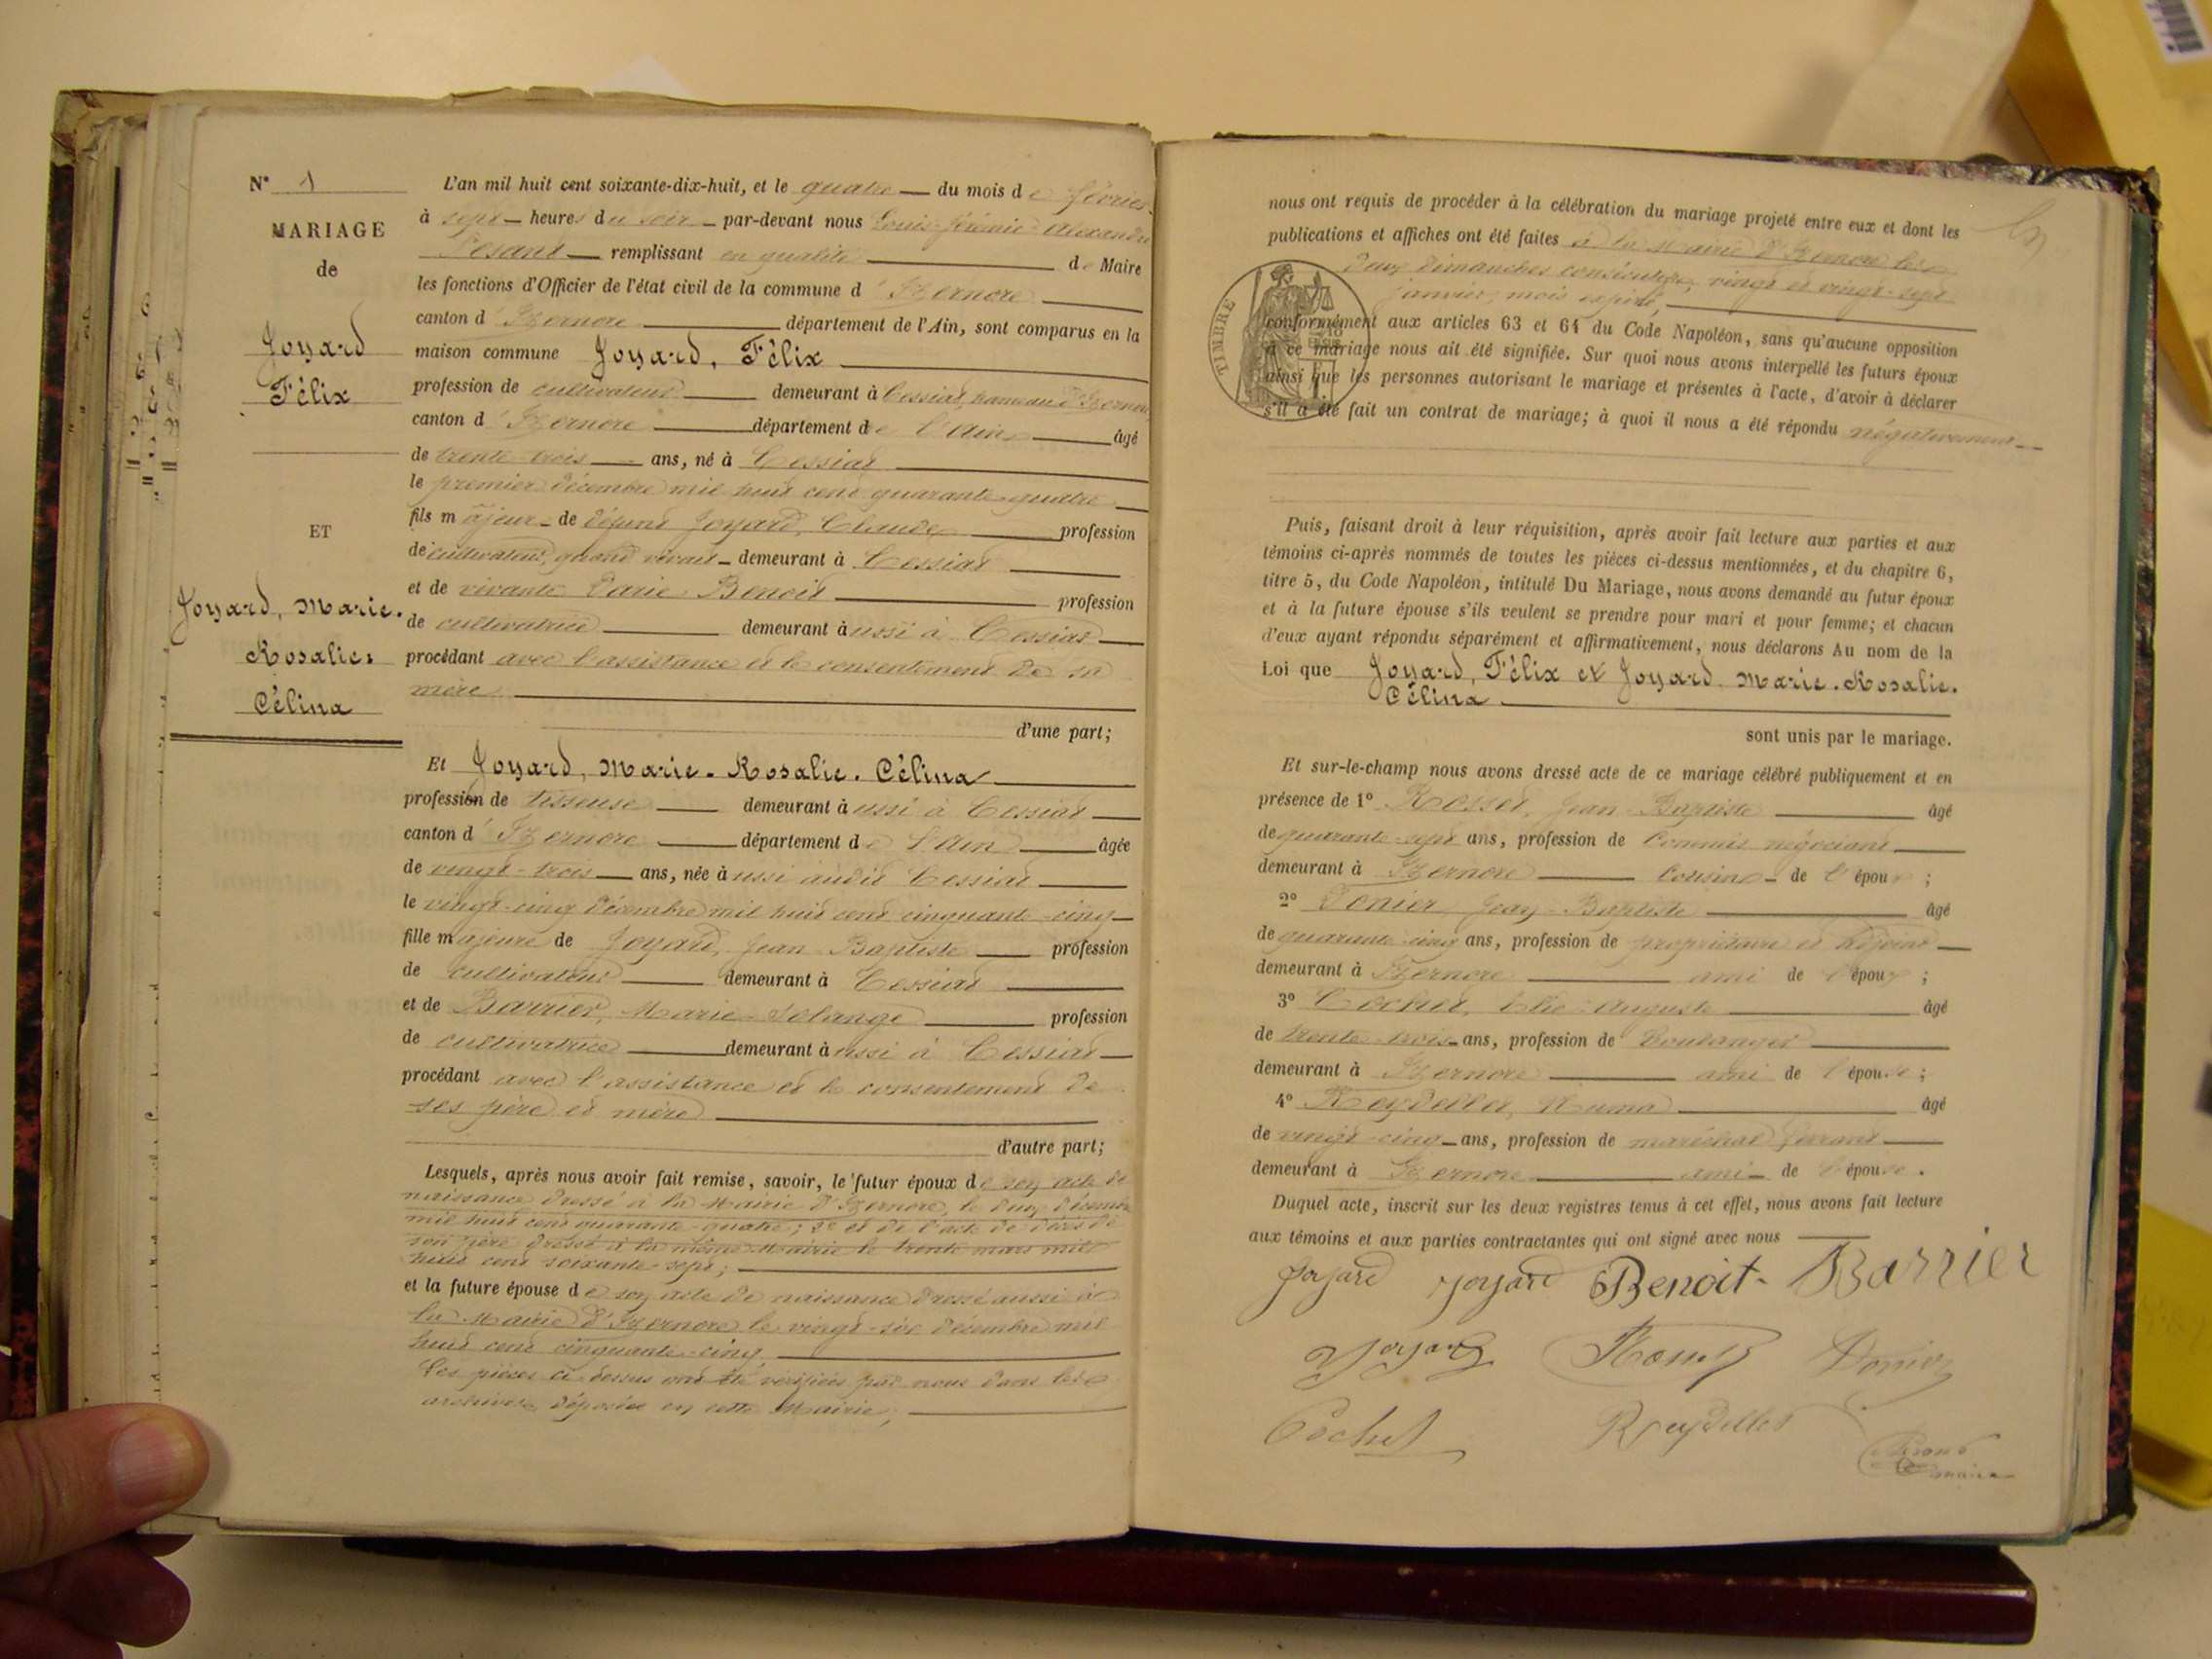 N° 1
MARIAGE
de
Joyard
Félix
ET
Joyard, Marie.
Rosalie.
Célina
L'an mil huit cent soixante-dix-huit, et le quatre du mois de février
à sept heures du soir par-devant nous Louis Jérémie Alexandre
remplissant en qualité de Maire
les fonctions d'Officier de l'état civil de la commune d'Izernore
canton d'Izernore département de l'Ain, sont comparus en la
maison commune Joyard, Félix
profession de cultivateur demeurant à Cessiat, hameau d'Izernore
canton d'Izernore département de l'Ain âgé
de trente-trois ans, né à Cessiat
le premier décembre mil huit cent quarante-quatre
fils majeur de défunt Joyard, Claude profession
de cultivateur, quand vivait demeurant à Cessiat
et de vivante Benoit profession
de cultivatrice demeurant aussi à Cessiat
procédant avec l'assistance et le consentement de sa
mère
d'une part;
Et Joyard, Marie-Rosalie. Célina
profession de tisseuse demeurant aussi à Cessiat
canton d'Izernore département de l'Ain âgée
de vingt-trois ans, née aussi audit Cessiat
le vingt-cinq décembre mil huit cent cinquante-cinq
fille majeure de Joyard, Jean Baptiste profession
de cultivateur demeurant à Cessiat
et de Barrier, Marie-Solange profession
de cultivatrice demeurant aussi à Cessiat
procédant avec l'assistance et le consentement de
ses père et mère
d'autre part;
Lesquels, après nous avoir fait remise, savoir, le futur époux de son acte de
naissance dressé à la Mairie d'Izernore, le deux décembre
mil huit cent quarante-quatre; 2° et de l'acte de décès de
son père dressé à la même Mairie le trente mars mil
huit cent soixante-sept;
et la future épouse de son acte de naissance dressé aussi à
la Mairie d'Izernore le vingt-six décembre mil
huit cent cinquante-cinq
Les pièces ci-dessus ont été vérifiées par nous dans les
archives déposées en cette Mairie;
nous ont requis de procéder à la célébration du mariage projeté entre eux et dont les
publications et affiches ont été faites à la Mairie d'Izernore les
deux dimanches consécutifs, vingt et vingt-sept
janvier, mois expiré,
TIMBRE
conformément aux articles 63 et 64 du Code Napoléon, sans qu'aucune opposition
à ce mariage nous ait été signifiée. Sur quoi nous avons interpellé les futurs époux
ainsi que les personnes autorisant le mariage et présentes à l'acte, d'avoir à déclarer
s'il a été fait un contrat de mariage; à quoi il nous a été répondu négativement
Puis, faisant droit à leur réquisition, après avoir fait lecture aux parties et aux
témoins ci-après nommés de toutes les pièces ci-dessus mentionnées, et du chapitre 6,
titre 5, du Code Napoléon, intitulé Du Mariage, nous avons demandé au futur époux
et à la future épouse s'ils veulent se prendre pour mari et pour femme; et chacun
d'eux ayant répondu séparément et affirmativement, nous déclarons Au nom de la
Loi que Joyard, Félix et Joyard Marie-Rosalie.
Célina
sont unis par le mariage.
Et sur-le-champ nous avons dressé acte de ce mariage célébré publiquement et en
présence de 1° Rosset, Jean-Baptiste âgé
de quarante-sept ans, profession de commis négociant
demeurant à Izernore cousin de l'époux;
2° Jean-Baptiste âgé
de quarante-cinq ans, profession de propriétaire et
demeurant à Izernore ami de l'époux;
3° Cochet, Élie-Auguste âgé
de trente-trois ans, profession de Boulanger
demeurant à Izernore ami de l'épouse;
4° Reydellet, Numa âgé
de vingt-cinq ans, profession de maréchal ferrant
demeurant à Izernore ami de l'épouse.
Duquel acte, inscrit sur les deux registres tenus à cet effet, nous avons fait lecture
aux témoins et aux parties contractantes qui ont signé avec nous
Joyard Joyard Benoit Barrier
Joyard
Cochet Reydellet